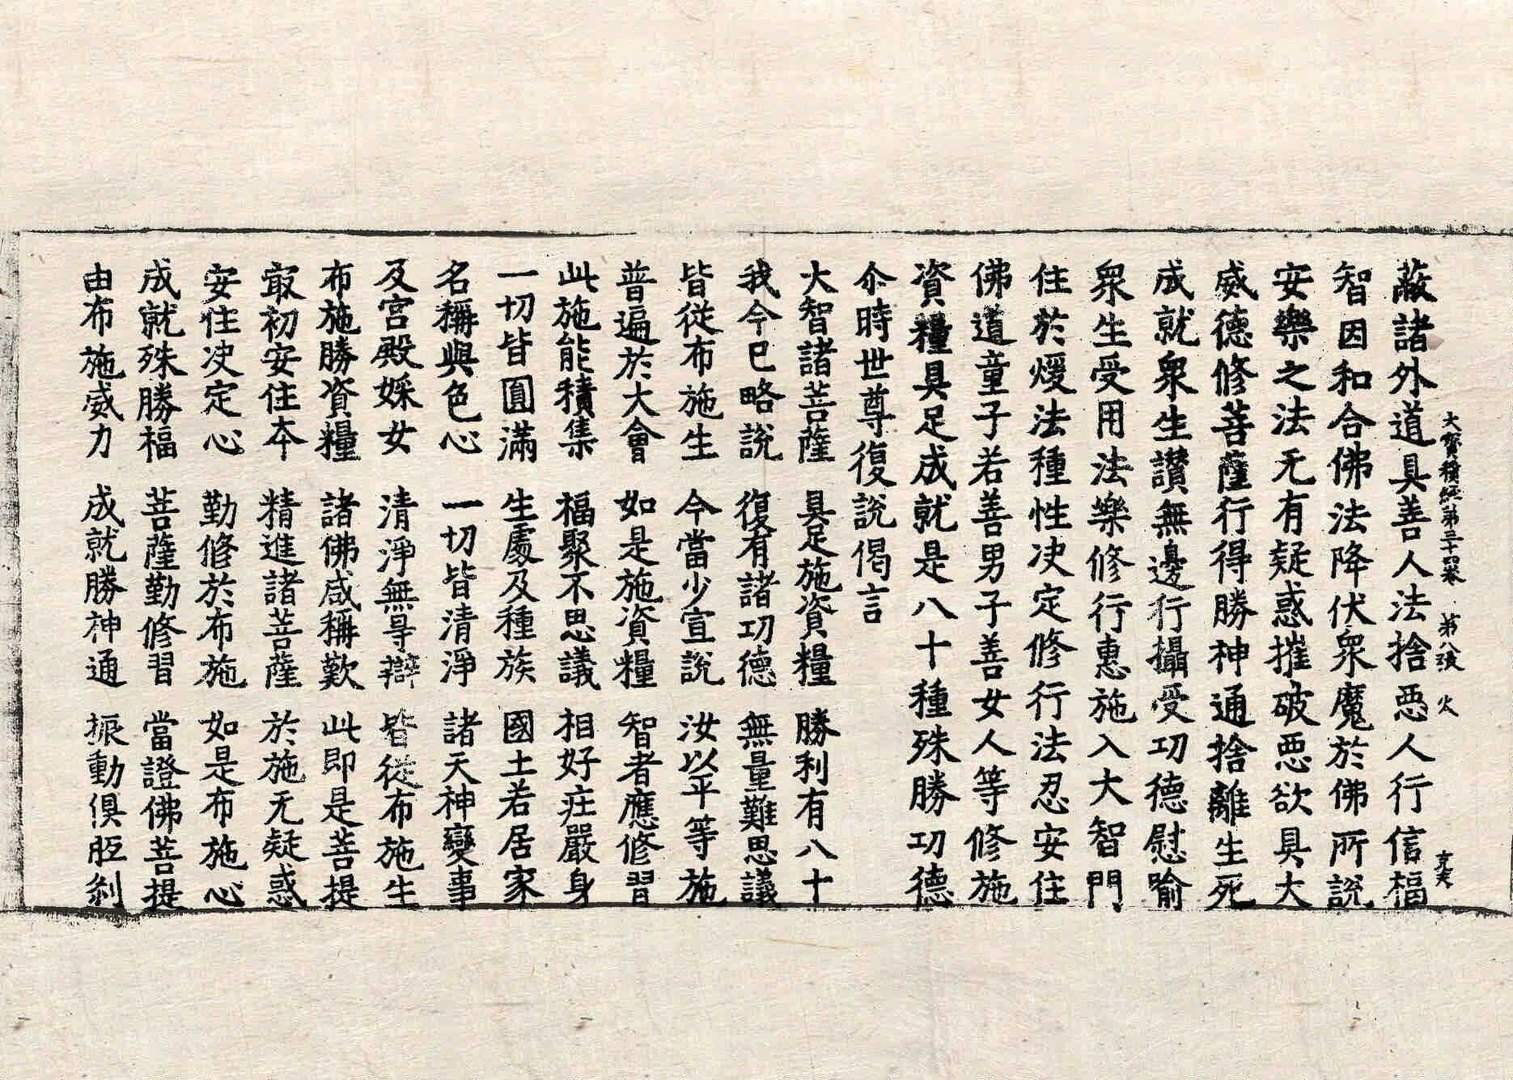 蔽諸外道具善人法捨惡人行信福
大寶積經第三十四卷 第八張 火
智因和合佛法降伏衆魔於佛所說
安樂之法无有疑惑摧破惡欲具大
威德修菩薩行得勝神通捨離生死
成就衆生讃無邊行攝受功德慰喻
衆生受用法樂修行惠施入大智門
住於煖法種性决定修行法忍安住
佛道童子若善男子善女人等修施
資糧具足成就是八十種殊勝功德
尒時世尊復說偈言
大智諸菩薩 具足施資糧 勝利有八十
我今已略說 復有諸功德 無量難思議
皆從布施生 今當少宣說 汝以平等施
普遍於大會 如是施資糧 智者應修習
此施能積集 福聚不思議 相好莊嚴身
一切皆圓滿 生處及種族 國土若居家
名稱與色心 一切皆清淨 諸天神變事
及宮殿婇女 清淨無㝵辯 皆從布施生
布施勝資糧 諸佛咸稱歎 此即是菩提
㝡初安住夲 精進諸菩薩 於施无疑惑
安住决定心 勤修於布施 如是布施心
成就殊勝福 菩薩勤修習 當證佛菩提
由布施威力 成就勝神通 振動俱胝刹